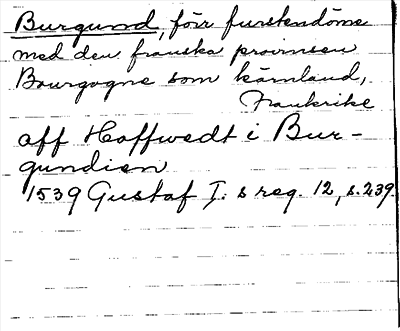 Burgund, förr furstendöme
med den franska provinsen
Bourgogne som kärnland,
Frankrike
aff Hoffwedt i Bur-
gundien
1539 Gustaf I:s reg. 12, s. 239.